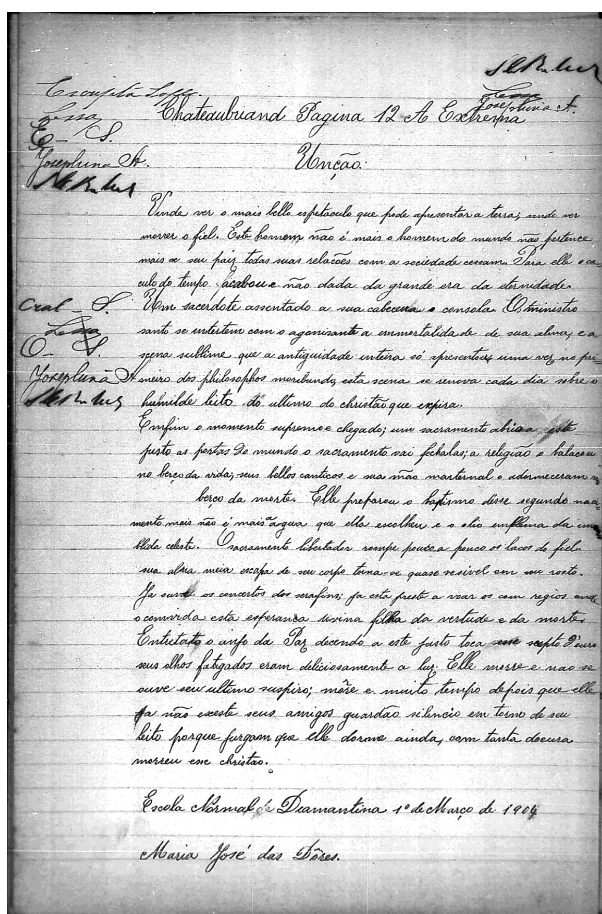 Escripta Soffr.
Lessa
Josephina A.
Chateaubriand Pagina 12 A Extrema
Lessa
E- S.
Josephina A.
Unção.
Vinde ver o mais bello espetaculo que pode apresentar a terra, vinde ver
morrer o fiel. Este homem não é mais o homem do mundo não pertence
mais a seu paiz, todas suas relações com a sociedade cessam. Para elle o cal
culo do tempo acabou e não dada da grande era da eternidade.
Um sacerdote assentado a sua cabeceira o consola. O ministro
santo se intertem com o agonisante a immertalidade de sua alma, e a
scena sublime que a antiguidade inteira só apresentou uma vez no pri
meiro dos philosophos moribundo, esta scena se renova cada dia sobre o
humilde leito do ultimo do christão que expira.
Oral S.
Lessa
O- S.
Josephina A.
Emfim o momento supremo e chegado; um sacramento abriu a este
justo as portas do mundo o sacramento vai fechalas; a religião o balaçou
no berço da vida; seus bellos canticos e sua mão marternal o adormeceram
berço da morte. Elle preparou o baptismo desse segundo nasci
mento, mais não é mais agua que ella escolheu e o olio emblema da
celeste. O sacramento libertador rompe pouco, a pouco os lacos do fiel
sua alma meia escapa de seu corpo torna-se quase vesivel em seu rosto.
Ja ouve os concertos dos serafins; ja esta presto a voar os com regios onde
o convida esta esperança divina filha da vertude e da morte.
Entretato o anjo da Paz decendo a este justo toca seu scepto d'ouro
seus olhos fatigados eram deliciosamente a luz. Elle morre e nao se
ouve seu ultimo suspiro; môre e muito tempo depois que elle
ja não exeste seus amigos guardão silencio em torno de seu
leito porque jurgam que elle dorme ainda, com tanta docura
morreu esse christão.
Escola Normal de Diamantina 1º de Março de 1904
Maria José das Dôres.